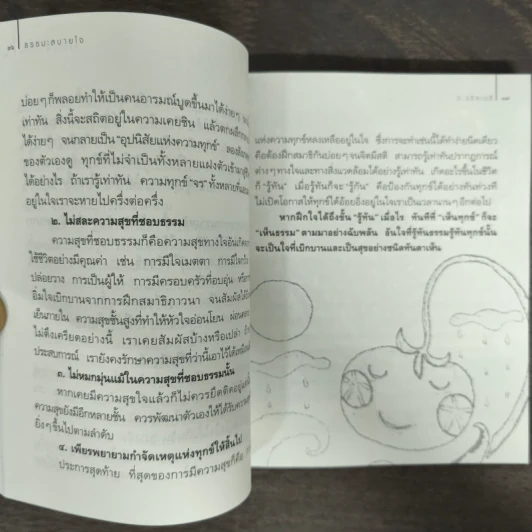 ธรรมะสบายใจ
บ่อยๆ ก็พลอยทำให้เป็นคนอารมณ์บูดขึ้นมาได้ง่ายๆ
เท่าทัน สิ่งนี้จะสถิตอยู่ในความเคยชิน แล้วตกผลึก
ได้ง่ายๆ จนกลายเป็น "อุปนิสัยแห่งความทุกข์"
ของตัวเองดู ทุกข์ที่ไม่จำเป็นทั้งหลายแฝงตัวเข้ามา
ได้อย่างไร ถ้าเรารู้เท่าทัน ความทุกข์ "จร" ทั้งหลาย
อยู่ในใจเราจะหายไปครึ่งต่อครึ่ง
๒. ไม่สละความสุขที่ชอบธรรม
ความสุขที่ชอบธรรมก็คือความสุขทางใจอัน
ใช้ชีวิตอย่างมีคุณค่า เช่น การมีใจเมตตา การมี
ปล่อยวาง การเป็นผู้ให้ การมีครอบครัวที่อบอุ่น
อิ่มใจเบิกบานจากการฝึกสมาธิภาวนา จนสัมผัสได้
เย็นภายใน ความสุขชั้นสูงที่ทำให้หัวใจอ่อนโยน
ไม่ตึงเครียดอย่างนี้ เราเคยสัมผัสบ้างหรือเปล่า
ประสบการณ์ เรายังคงรักษาความสุขที่ว่านี้เอาไว้ได้
๓. ไม่หมกมุ่นแม้ในความสุขที่ชอบธรรมนั้น
หากเคยมีความสุขใจแล้วก็ไม่ควรยึดติดอยู่
ความสุขยังมีอีกหลายชั้น ควรพัฒนาตัวเองให้ได้รับ
ยิ่งๆ ขึ้นไปตามลำดับ
๔. เพียรพยายามกำจัดเหตุแห่งทุกข์ให้สิ้นไป
ประการสุดท้าย ที่สุดของการมีความสุขก็คือ
แห่งความทุกข์หลงเหลืออยู่ในใจ ซึ่งการจะทำเช่นนี้ได้ทำง่ายนิดเดียว
คือต้องฝึกสมาธิกันบ่อยๆ จนจิตมีสติ สามารถรู้เท่าทันปรากฏการณ์
ต่างๆ ทางใจและทางสิ่งแวดล้อมได้อย่างรู้เท่าทัน เกิดอะไรขึ้นในชีวิต
ก็ "รู้ทัน" เมื่อรู้ทันก็จะ "รู้กัน" คือป้องกันทุกข์ได้อย่างทันท่วงที
ไม่เปิดโอกาสให้ทุกข์ได้ย้อยอิ้งอยู่ในใจเราเป็นเวลานานๆ อีกต่อไป
หากฝึกใจได้ถึงขั้น "รู้ทัน" เมื่อไร ทันทีที่ "เห็นทุกข์" ก็จะ
"เห็นธรรม" ตามมาอย่างฉับพลัน อันใจที่รู้ทันธรรมรู้ทันทุกข์นั้น
จะเป็นใจที่เบิกบานและเป็นสุขอย่างชนิดทันตาเห็น